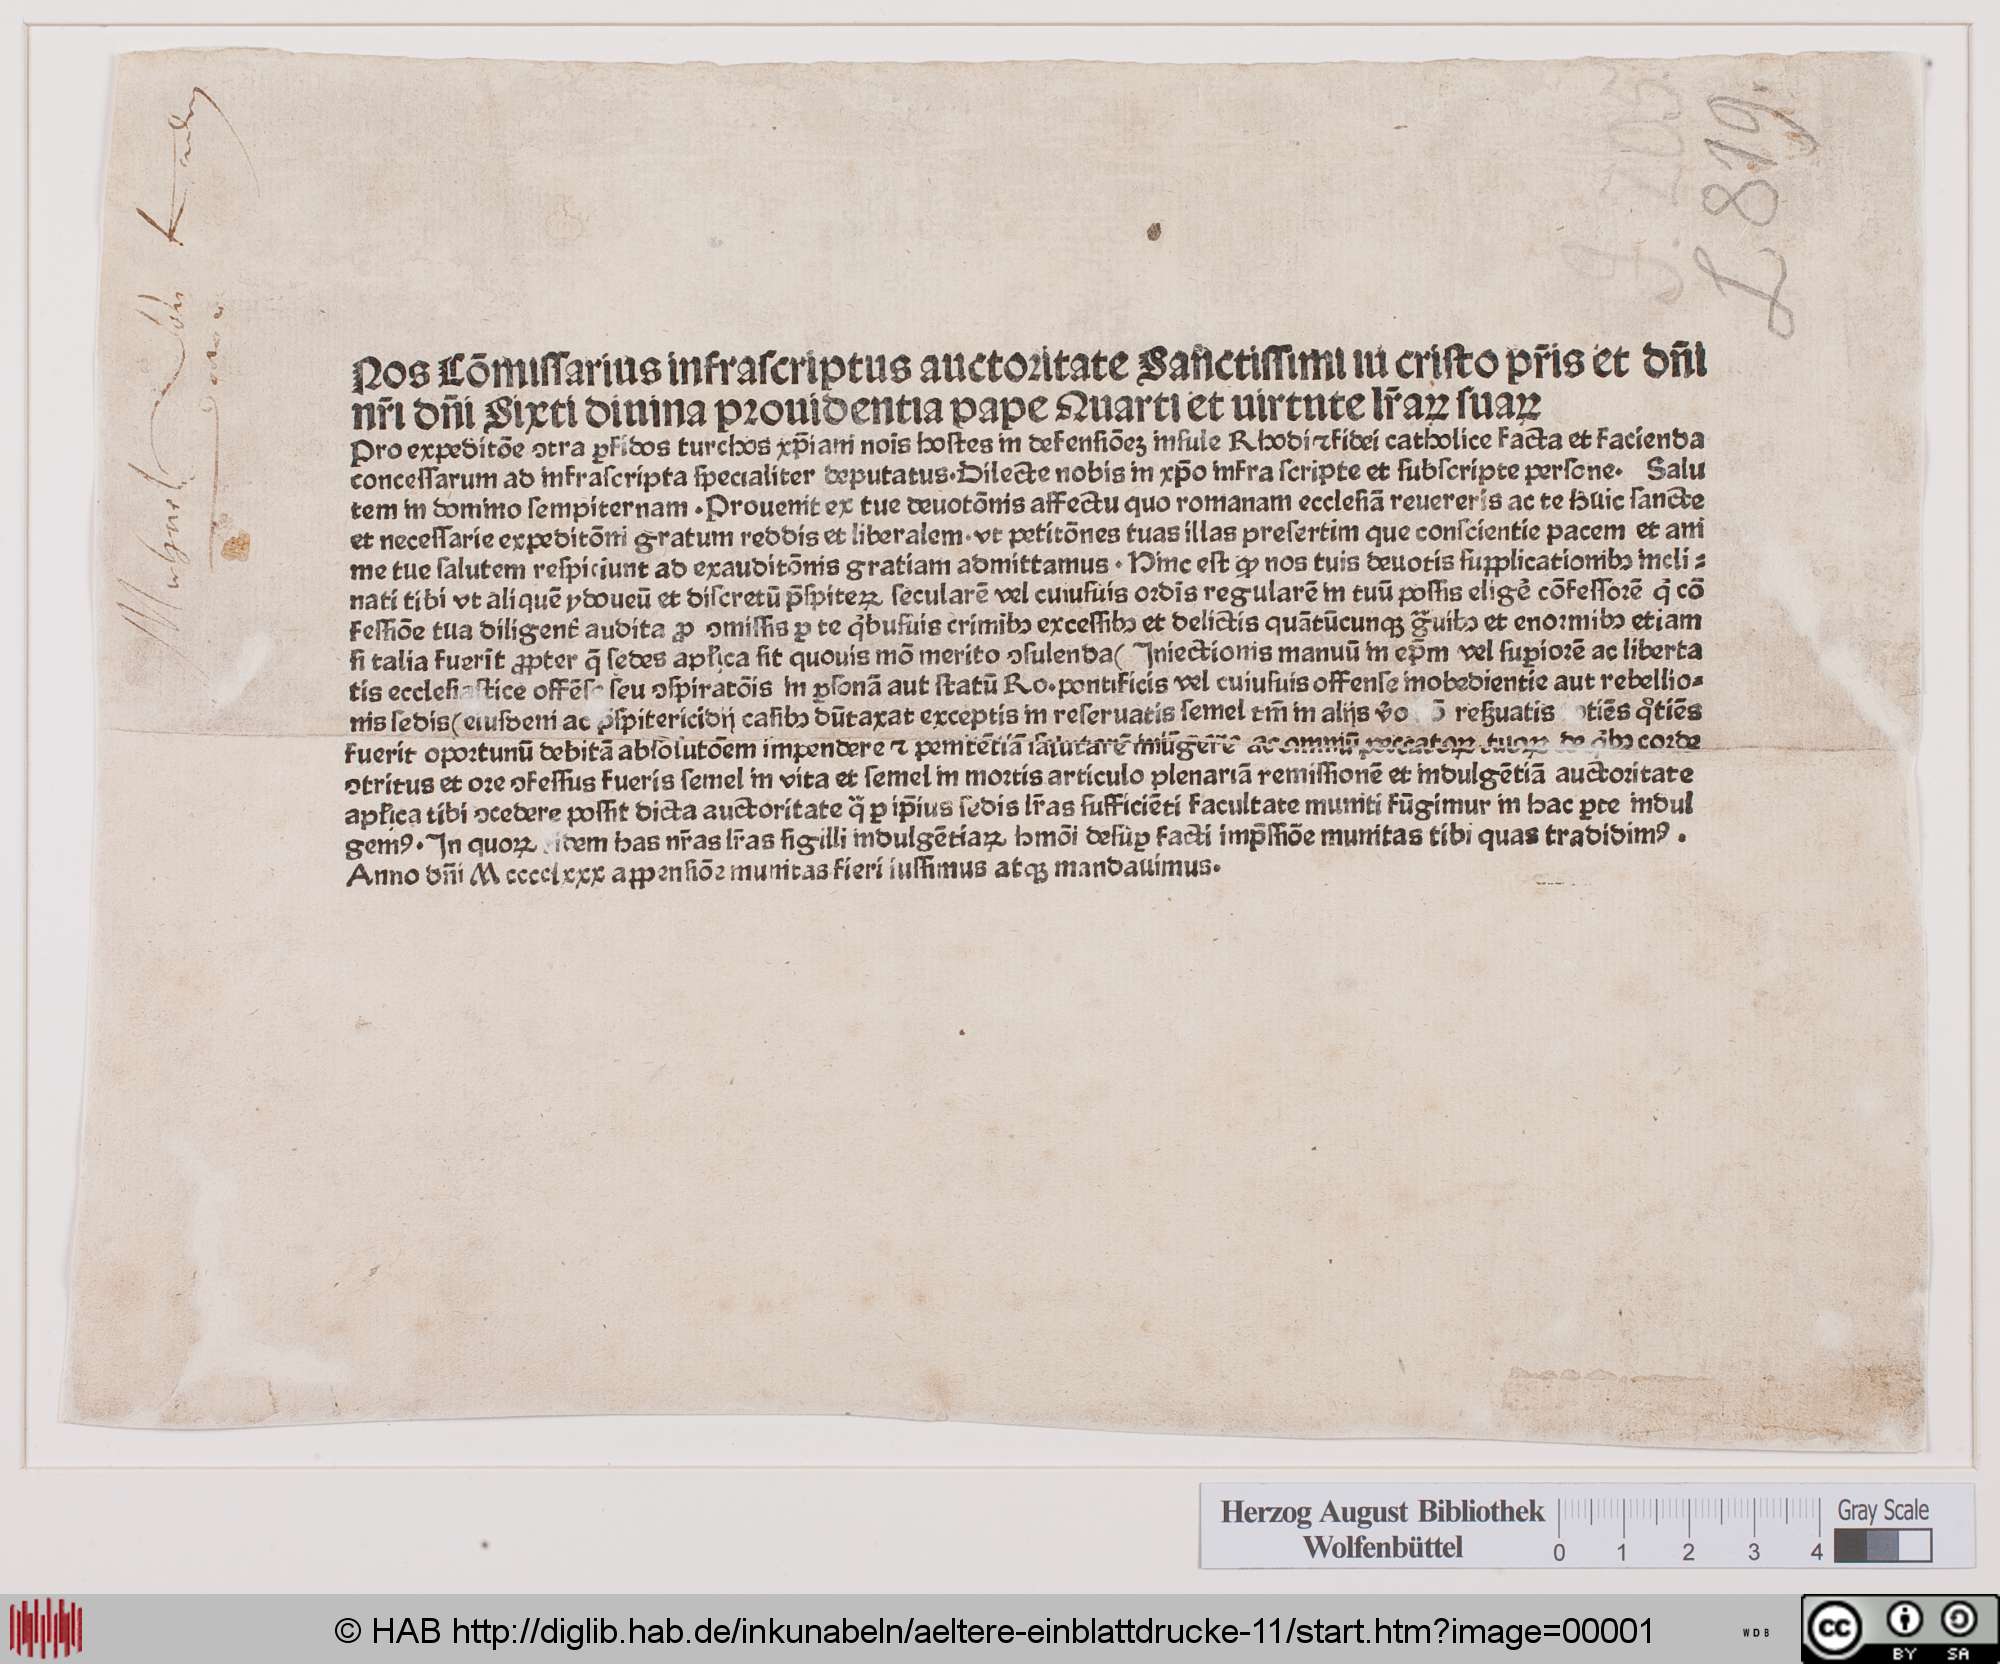 Nos Cōmissarius infrascriptus auctoritate Sanctissimi iu cristo pr̄is et dn̄i
nr̄i dn̄i Sixti diuina prouidentia pape Quarti et uirtnte lr̄aꝝ suaꝝ
Pro expeditōe ꝯtra ꝑfidos turchos xp̄iani nois hostes in defensiōeꝫ insule Rhodi ⁊ fidei catholice facta et facienda
concessarum ad infrascripta specialiter deputatus. Dilecte nobis in xp̄o infra scripte et subscripte persone. Salu
tem in domino sempiternam. Prouenit ex tue deuotōnis affectu quo romanam ecclesiā reuereris ac te huic sancte
et necessarie expeditōni gratum reddis et liberalem. vt petitōnes tuas illas presertim que conscientie pacem et ani
me tue salutem respiciunt ad exauditōnis gratiam admittamus. Hinc est ꝙ nos tuis deuotis supplicationibꝫ incli⸗
nati tibi vt aliquē ydoueū et discretū p̄spiteꝝ secularē vel cuiusuis ordīs regularē in tuū possis eligē cōfessorē q̇ cō
fessiōe tua diligent̄ audita ꝓ ꝯmissis ꝑ te q̇busuis crimibꝫ excessibꝫ et delictis quātūcunqꝫ g̃uibꝫ et enormibꝫ etiam
si talia fuerit ꝓpter q̄ sedes apl̄ica sit quouis mō merito ꝯsulenda( Iniectionis manuū in ep̄m vel suꝑiorē ac liberta
tis ecclesiastice offēse seu ꝯspiratōis in ꝑsonā aut statū Ro. pontificis vel cuiusuis offense inobedientie aut rebellio⸗
nis sedis( eiusdem ac p̄spitericidij casibꝫ dūtaxat exceptis in reseruatis semel tm̄ in alijs reẞuatis totiēs q̊tiēs
fuerit oportunū debitā absolutōem impendere ⁊ penitētiā salutarē iniūgere ac omniū peccatoꝝ tuoꝝ de q̇bꝫ corde
ꝯtritus et ore ꝯfessus fueris semel in vita et semel in mortis articulo plenariā remissionē et indulgētiā auctoritate
apl̄ica tibi ꝯcedere possit dicta auctoritate q̃ ꝑ ip̄ius sedis lr̄as sufficiēti facultate muniti fūgimur in hac ꝑte indul
gemꝰ. In quoꝝ fidem has nr̄as lr̄as sigilli indulgētiaꝝ hmōi desuꝑ facti imp̄ssiōe munitas tibi quas tradidimꝰ.
Anno dn̄i M cccclxxx appensiōe munitas fieri iussimus atqꝫ mandauimus.
L 819.
Herzog August Bibliothek
Wolfenbüttel
0 1 2 3 4
Gray Scale
© HAB http://diglib.hab.de/inkunabeln/aeltere-einblattdrucke-11/start.htm?image=00001
WDB
cc BY SA